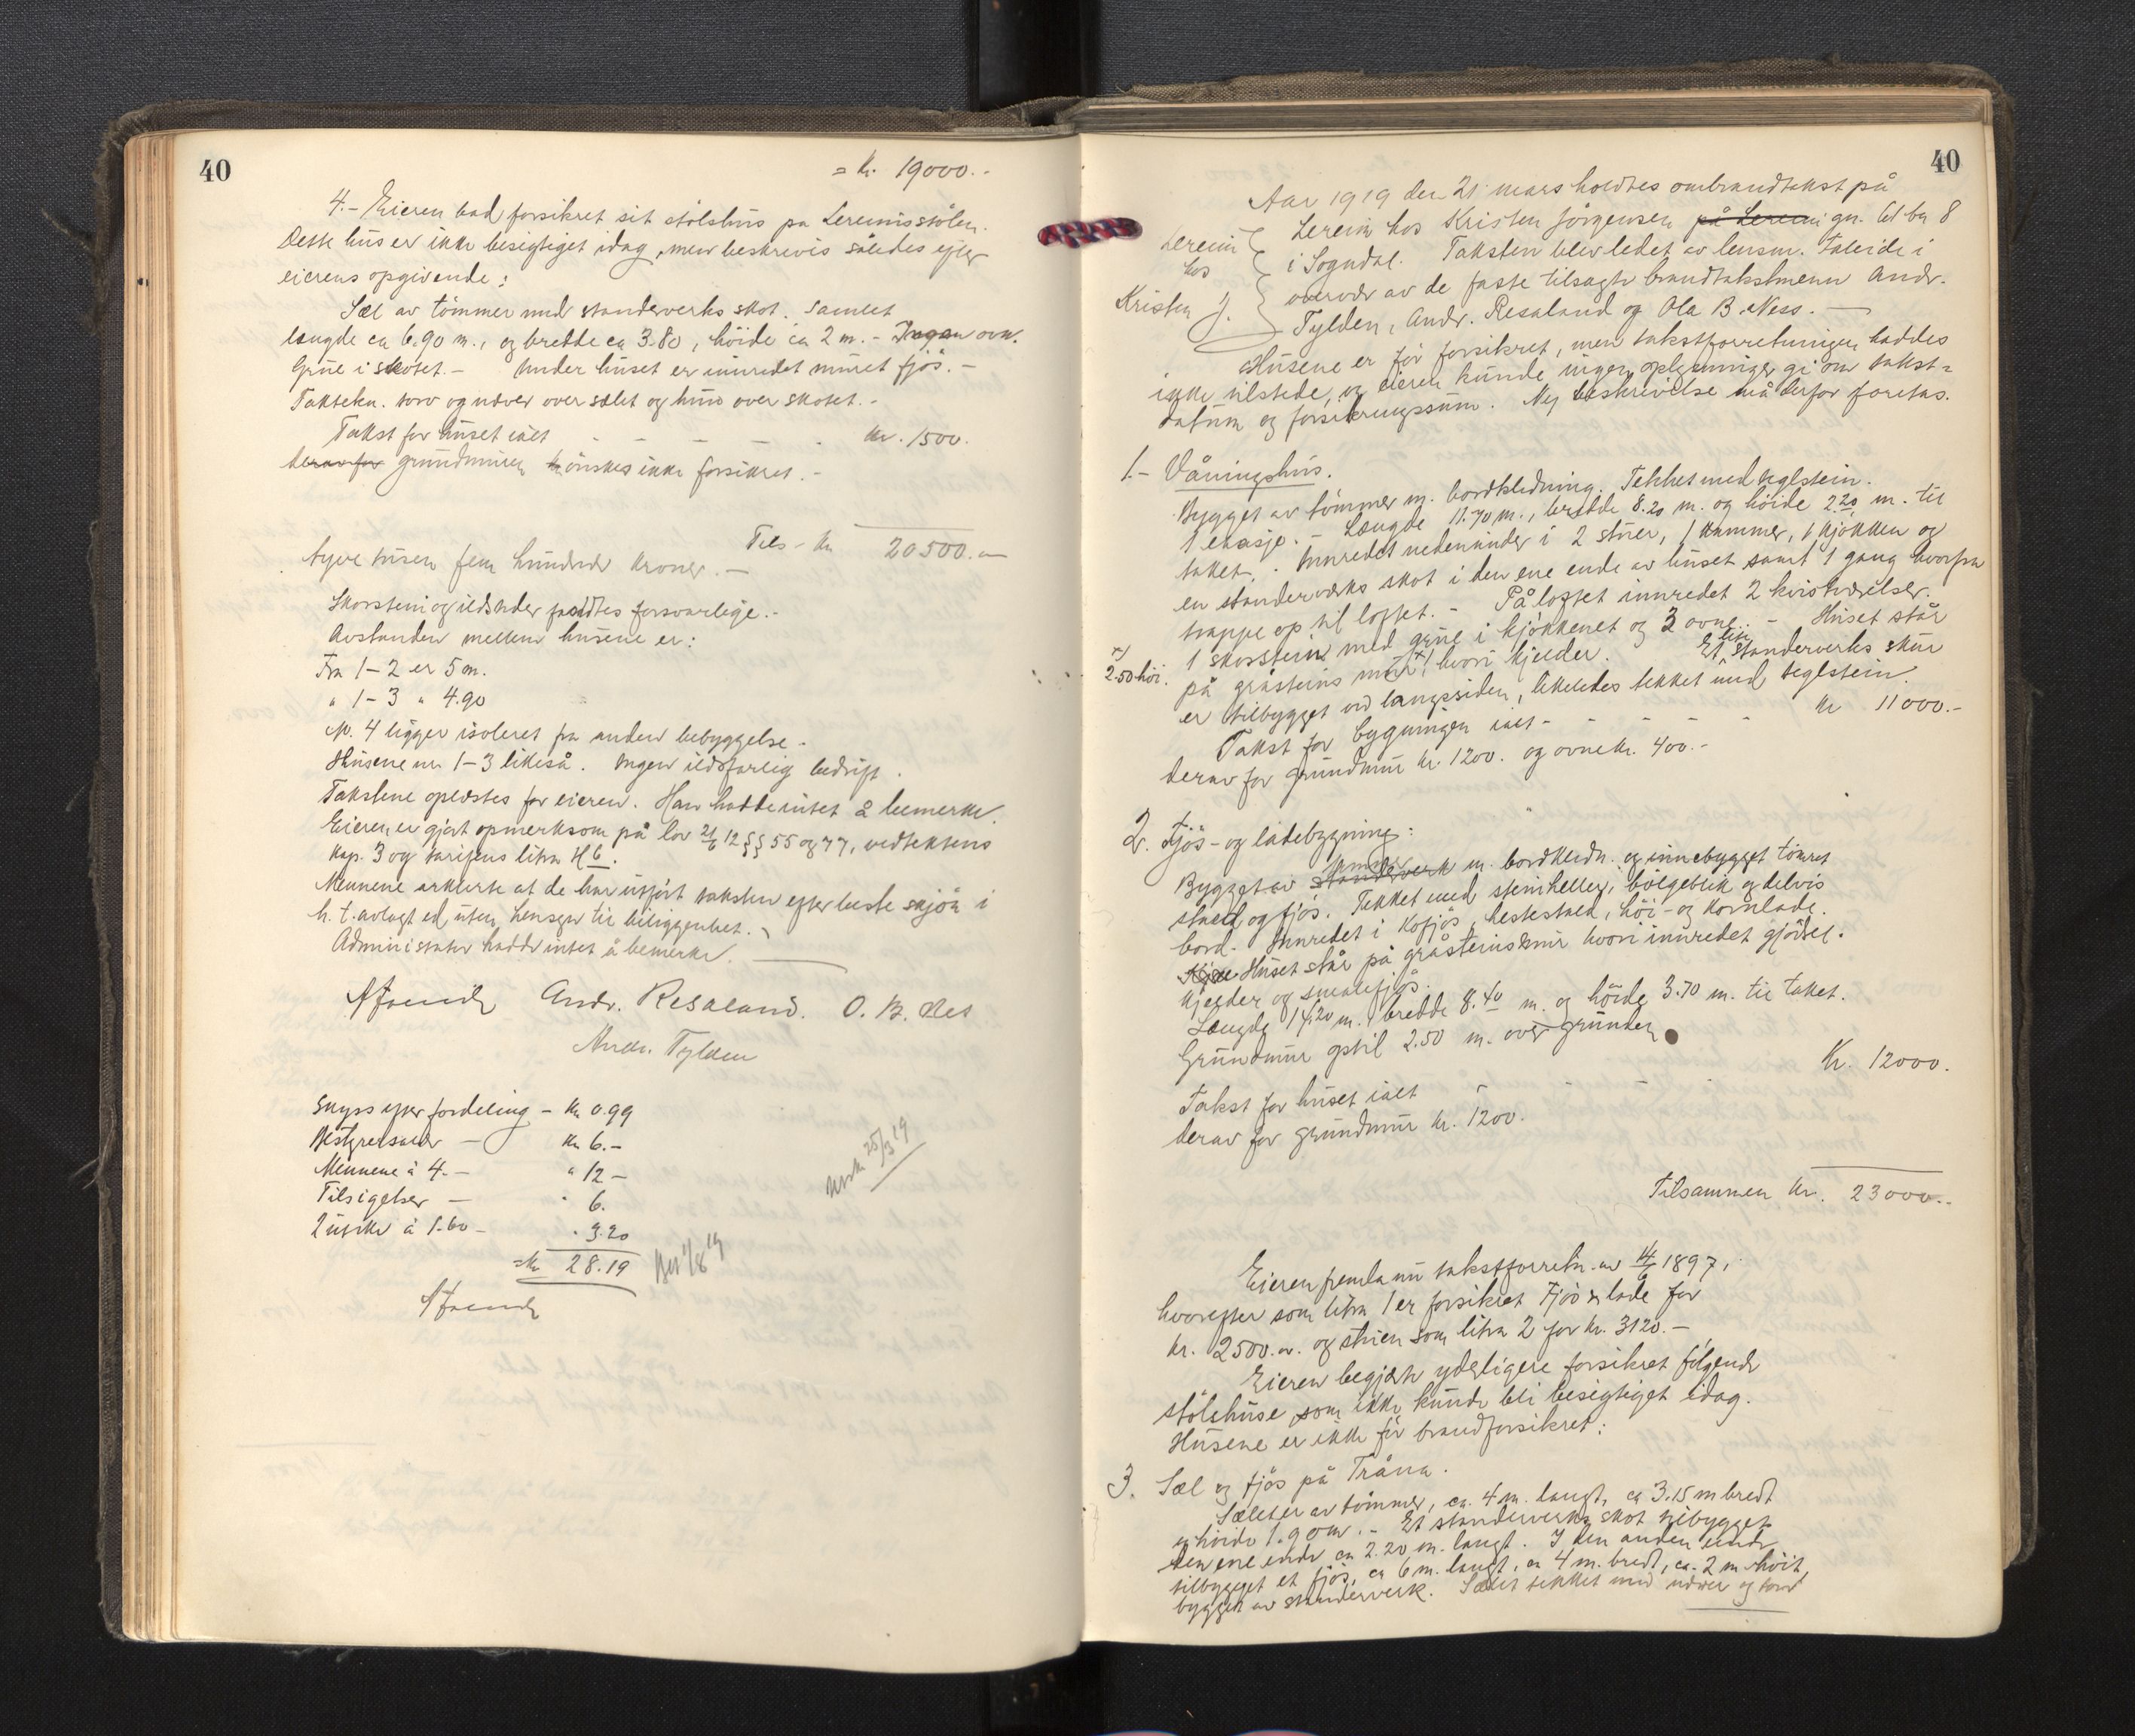 40
= Kr. 19000.-
4.- Eieren bad forsikret sit stølshus på Lereimsstølen.
Dette hus er ikke besigtiget idag, men beskrives således efter
eierens opgivende:
Sæl av tømmer med standerverks skot. Samlet
længde ca 6.90 m., og bredde ca 3.80, høide ca 2 m. - Ingen ovn.
Grue i skotet. - Under huset er innredet muret fjøs. -
Taktekn. torv og næver over sælet og over skotet. -
Takst for huset ialt - - - - - Kr. 1500.
derav for grundmuren ønskes ikke forsikret. -
Tils - Kr 20500.-
tyve tusen fem hundrede kroner. -
Skorstein og ildsteder fandtes forsvarlige. -
Avstanden mellem husene er:
Fra 1-2 er 5 m.
" 1-3 " 4.90
Nr. 4 ligger isoleret fra anden bebyggelse -
Husene nr 1-3 likeså. Ingen ildsfarlig bedrift.
Takstene oplæstes for eieren. Han hadde intet å bemerke.
Eieren er gjort opmerksom på lov 21/6 12 §§ 55 og 77, vedtektens
kap. 3 og tarifens litra H 6.
Mennene erklærte at de har utført taksten efter beste skjøn i
h. t. avlagt ed uten hensyn til beliggenhet. -
Administrator hadde intet å bemerke. -
Andr. Resaland. O. B. Nes
Andr. Tylden
Skyss efter fordeling - Kr 0.99
Bestyrelsen - Kr 6.-
Mennene à 4.- " 12 -
Tilsigelser - " 6.
2 utskr à 1.60 - " 3.20
= Kr 28.19
Utsk. 25/3 19
40
Aar 1919 den 21 mars holdtes ombrandtakst på
Lereim hos Kristen Jørgensen på Lereim gn. 61 bn 8
i Sogndal. Taksten blev ledet av lensm. i
overvær av de faste tilsagte brandtakstmenn Andr.
Tylden, Andr. Resaland og Ola B. Ness. -
Lereim
hos
Kristen J.
Husene er før forsikret, men takstforretningen haddes
ikke tilstede, og eieren kunde ingen oplysninger gi om takst-
datum og forsikringssum. Ny beskrivelse må derfor foretas.
1.- Våningshus.
Bygget av tømmer m. bordklædning. Tekket med teglstein.
1 etasje. - Længde 11.70 m., bredde 8.20 m. og høide 2.20 m. til
taket. - Innredet nedenunder i 2 stuer, 1 kammer, 1 kjøkken og
en standerverks skot i den ene ende av huset samt 1 gang hvorfra
trappe op til loftet. - På loftet innredet 2 kvistværelser.
1 skorstein med grue i kjøkkenet og 3 ovne. - Huset står
på gråsteins mur x) hvori kjelder. Et lite standerverks skur
x) 2.50 høi.
er tilbygget ved langsiden, likeledes tekket med teglstein.
Takst for bygningen ialt - - - - - Kr 11000.-
derav for grundmur kr. 1200. og ovne kr. 400.-
2. Fjøs- og ladebygning:
Bygget av standerverk m. bordkledn. og innebygget tømret
stald og fjøs. Tekket med steinheller, bølgeblik og delvis
bord. Innredet i kofjøs, hestestald, høi- og kornlade.
Huset står på gråsteinsmur hvori innredet gjødsel-
kjelder og smalefjøs.
Længde 14.20 m. bredde 8.40 m. og høide 3.70 m. til taket.
Grundmur optil 2.50 m. over grunden
Takst for huset ialt - - - - Kr. 12000.
derav for grundmur kr. 1200.
Tilsammen Kr. 23000.-
Eieren fremla nu takstforretn. av 14/6 1897,
hvorefter som litra 1 er forsikret Fjøs og lade for
kr. 2500.- og stuen som litra 2 for kr. 3120.-
Eieren begjærte yderligere forsikret følgende
stølshuse, som ikke kunde bli besigtiget idag.
Husene er ikke før brandforsikret:
3. Sæl og fjøs på Tråna.
Sælet er av tømmer, ca. 4 m. langt, ca 3.15 m bredt
og høide 1.90 m. - Et standerverks skot tilbygget
den ene ende ca 2.20 m. langt. I den anden ende
tilbygget et fjøs, ca 6 m. langt, ca 4 m. bredt, ca. 2 m høit,
bygget av standerverk. Sælet tekket med næver og torv